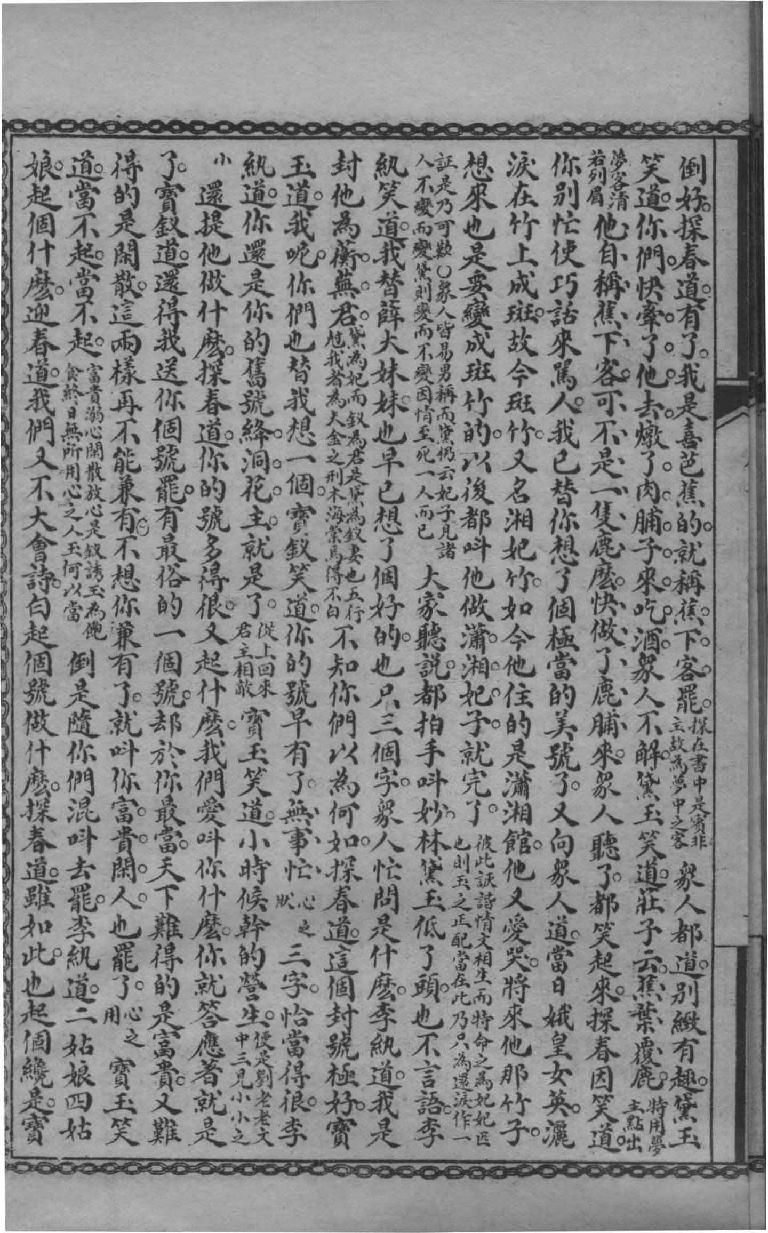 倒好探春道有了我是喜芭蕉的就稱蕉下客罷探在書中是賓非主故為夢中之客衆人都道別緻有趣黛玉
笑道你們快牽了他去燉了肉脯子來吃酒衆人不解黛玉笑道莊子云蕉葉覆鹿特用夢主點出
夢客清若列眉他自稱蕉下客可不是一隻鹿麽快做了鹿脯來衆人聽了都笑起來探春因笑道
你別忙使巧話來駡人我已替你想了個極當的美號了又向衆人道當日娥皇女英灑
淚在竹上成斑故今斑竹又名湘妃竹如今他住的是瀟湘館他又愛哭將來他那竹子
想來也是要變成斑竹的以後都呌他做瀟湘妃子就完了彼此詼諧情文相生而特命之為妃妃匹也則玉之正配當在此乃只為還淚作一
証是乃可歎○衆人皆易男稱而黛仍云妃子見諸人不變而變黛則變而不變因情至死一人而已大家聽説都拍手呌妙林黛玉低了頭也不言語李
紈笑道我替薛大妹妹也早已想了個好的也只三個字衆人忙問是什麽李紈道我是
封他為蘅蕪君黛為妃而釵為君是黛為釵妻也五行尅我者為夫金之刑木海棠焉得不白不知你們以為何如探春道這個封號極好寶
玉道我呢你們也替我想一個寶釵笑道你的號早有了無事忙心之狀三字恰當得很李
紈道你還是你的舊號絳洞花主就是了從上回來君主相敵寶玉笑道小時候幹的營生便是劉老老文中三見小小之
小還提他做什麽探春道你的號多得很又起什麽我們愛呌你什麽你就答應著就是
了寶釵道還得我送你個號罷有最俗的一個號却於你最當天下難得的是富貴又難
得的是閑散這兩樣再不能兼有不想你兼有了就呌你富貴閑人也罷了心之用寶玉笑
道當不起當不起富貴溺心閑散放心是釵誘玉為飽食終日無所用心之人玉何以當倒是隨你們混呌去罷李紈道二姑娘四姑
娘起個什麽迎春道我們又不大會詩白起個號做什麽探春道雖如此也起個纔是寶